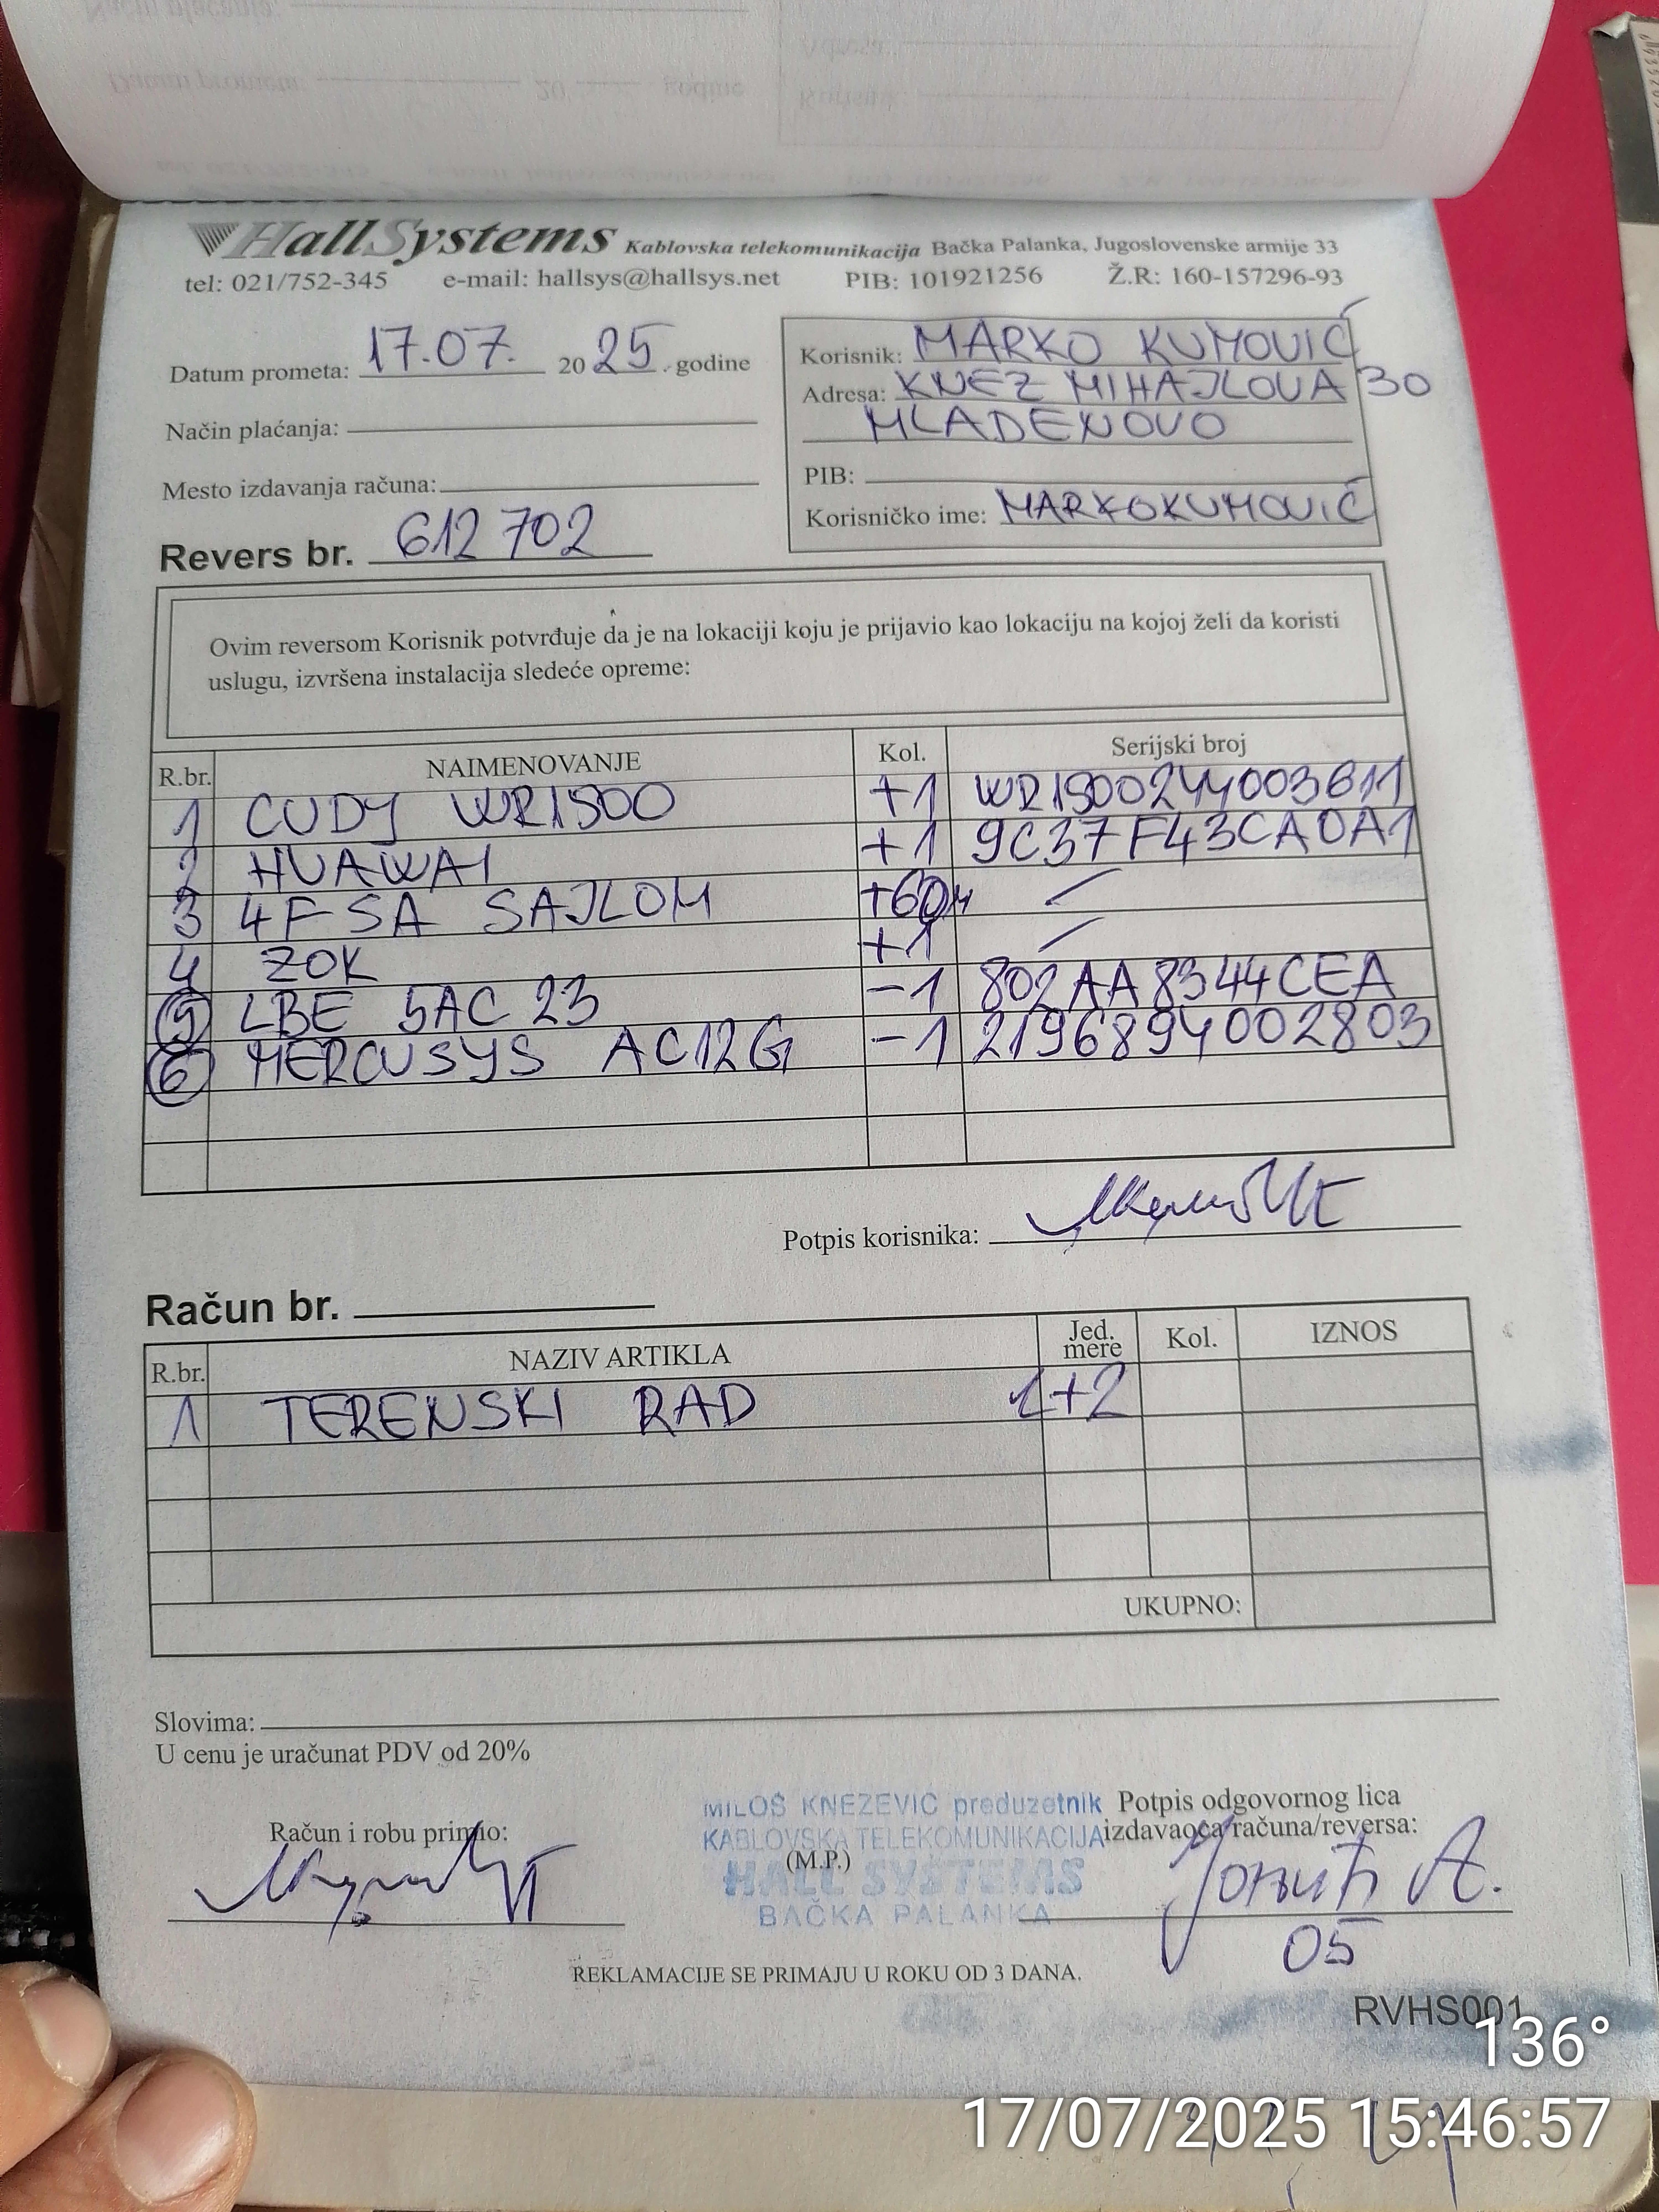 HallSystems Kablovska telekomunikacija Bačka Palanka, Jugoslovenske armije 33
tel: 021/752-345 e-mail: hallsys@hallsys.net PIB: 101921256 Ž.R: 160-157296-93
Datum prometa: 17.07. 2025. godine
Način plaćanja:
Mesto izdavanja računa:
Revers br. 612702
Korisnik: MARKO KUMOVIĆ
Adresa: KNEZ MIHAJLOVA 30
MLADENOVO
PIB:
Korisničko ime: MARKOKUMOVIĆ
Ovim reversom Korisnik potvrđuje da je na lokaciji koju je prijavio kao lokaciju na kojoj želi da koristi
uslugu, izvršena instalacija sledeće opreme:
R.br. NAIMENOVANJE Kol. Serijski broj
1 CUDY WR1500 +1 WR1500244003611
2 HUAWAI +1 9C37F43CA0A1
3 4F SA SAJLOM +60M /
4 ZOK +1 /
5 LBE 5AC 23 -1 802AA8344CEA
6 MERCUSYS AC12G -1 2196894002803
Potpis korisnika:
Račun br.
R.br. NAZIV ARTIKLA Jed. mere Kol. IZNOS
1 TERENSKI RAD 1+2
UKUPNO:
Slovima:
U cenu je uračunat PDV od 20%
Račun i robu primio:
MILOŠ KNEŽEVIĆ preduzetnik
KABLOVSKA TELEKOMUNIKACIJA
(M.P.)
HALL SYSTEMS
BAČKA PALANKA
Potpis odgovornog lica
izdavaoca računa/reversa:
05
REKLAMACIJE SE PRIMAJU U ROKU OD 3 DANA.
RVHS001
136°
17/07/2025 15:46:57